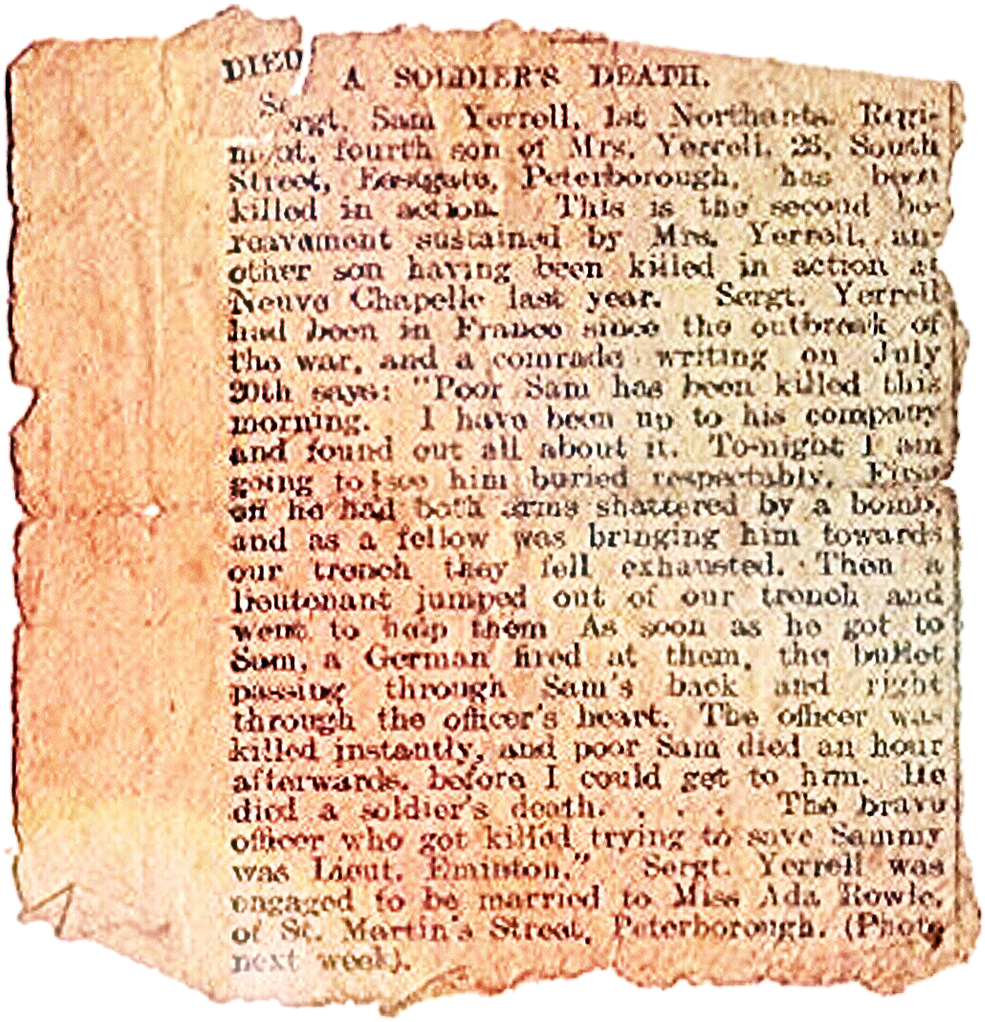 DIED A SOLDIER'S DEATH.
Sergt. Sam Yerrell, 1st Northants. Regi-
ment, fourth son of Mrs. Yerrell, 26, South
Street, Eastgate, Peterborough, has been
killed in action. This is the second be-
reavement sustained by Mrs. Yerrell, an-
other son having been killed in action at
Neuve Chapelle last year. Sergt. Yerrell
had been in France since the outbreak of
the war, and a comrade writing on July
20th says: "Poor Sam has been killed this
morning. I have been up to his company
and found out all about it. To-night I am
going to see him buried respectably. First
off he had both arms shattered by a bomb,
and as a fellow was bringing him towards
our trench they fell exhausted. Then a
lieutenant jumped out of our trench and
went to help them As soon as he got to
Sam, a German fired at them, the bullet
passing through Sam's back and right
through the officer's heart. The officer was
killed instantly, and poor Sam died an hour
afterwards, before I could get to him. He
died a soldier's death. . . . The brave
officer who got killed trying to save Sammy
was Lieut. Eminton." Sergt. Yerrell was
engaged to be married to Miss Ada Rowle,
of St. Martin's Street, Peterborough. (Photo
next week).